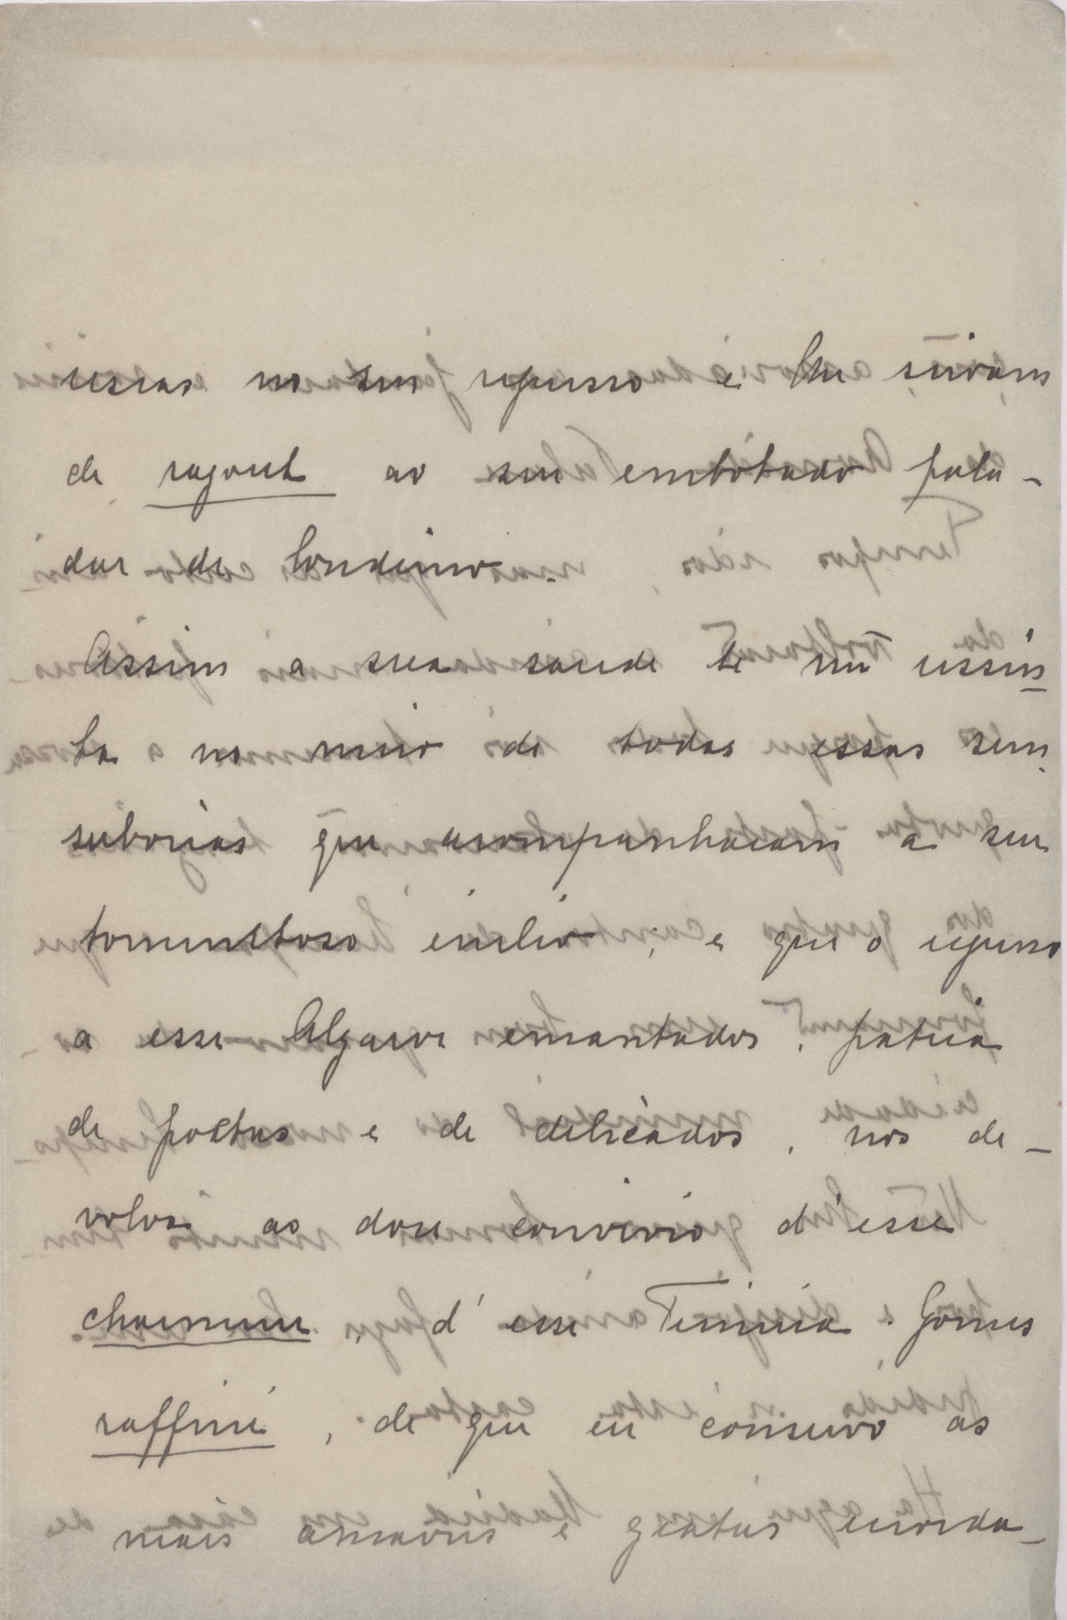 no seu regresso e lhe sirvam
de ragout ao seu embotado pala-
dar de londrino.
Assim a sua saude se não ressin
ta no meio de todas essas sen
saborias que acompanharam a seu
tomultoso exilio; e que o regresso
a esse Algarve encantador, patria
de poetas e de delicados, nos de-
volva ao doce convivio d'esse
charmeur, d'esse Teixeira Gomes
raffiné, de que eu conservo as
mais amaveis e gratas recorda-